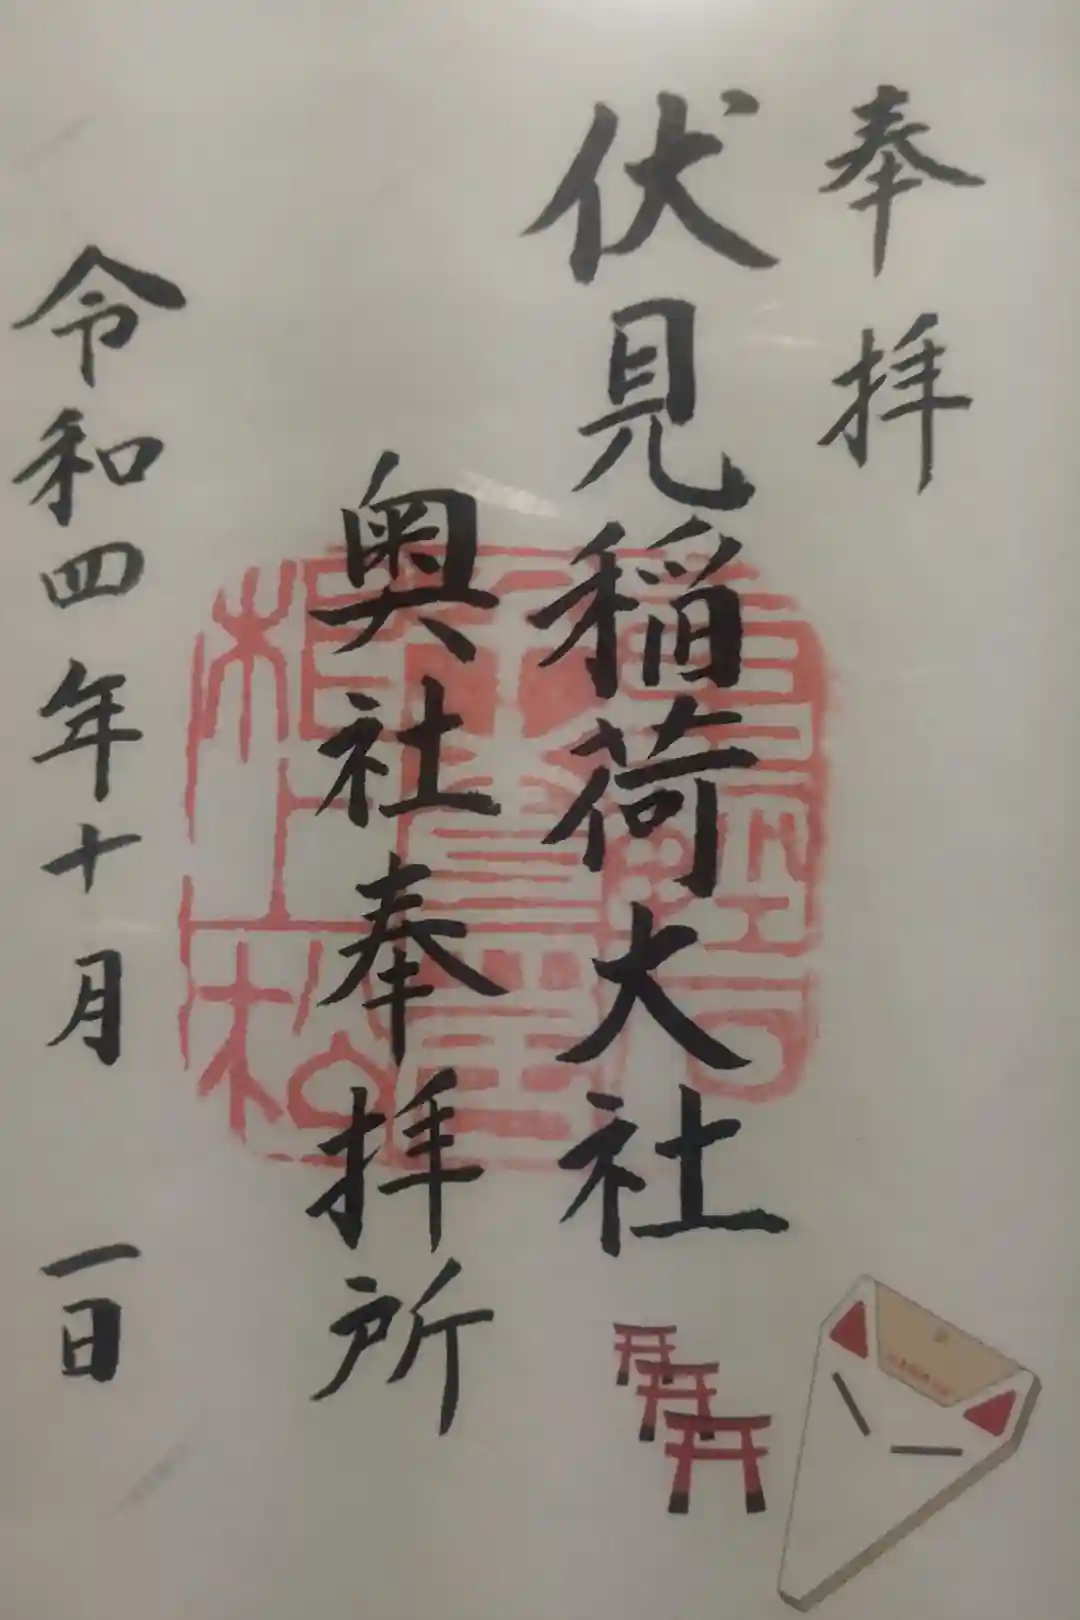 奉拝
伏見稲荷大社
奥社奉拝所
令和四年十月一日